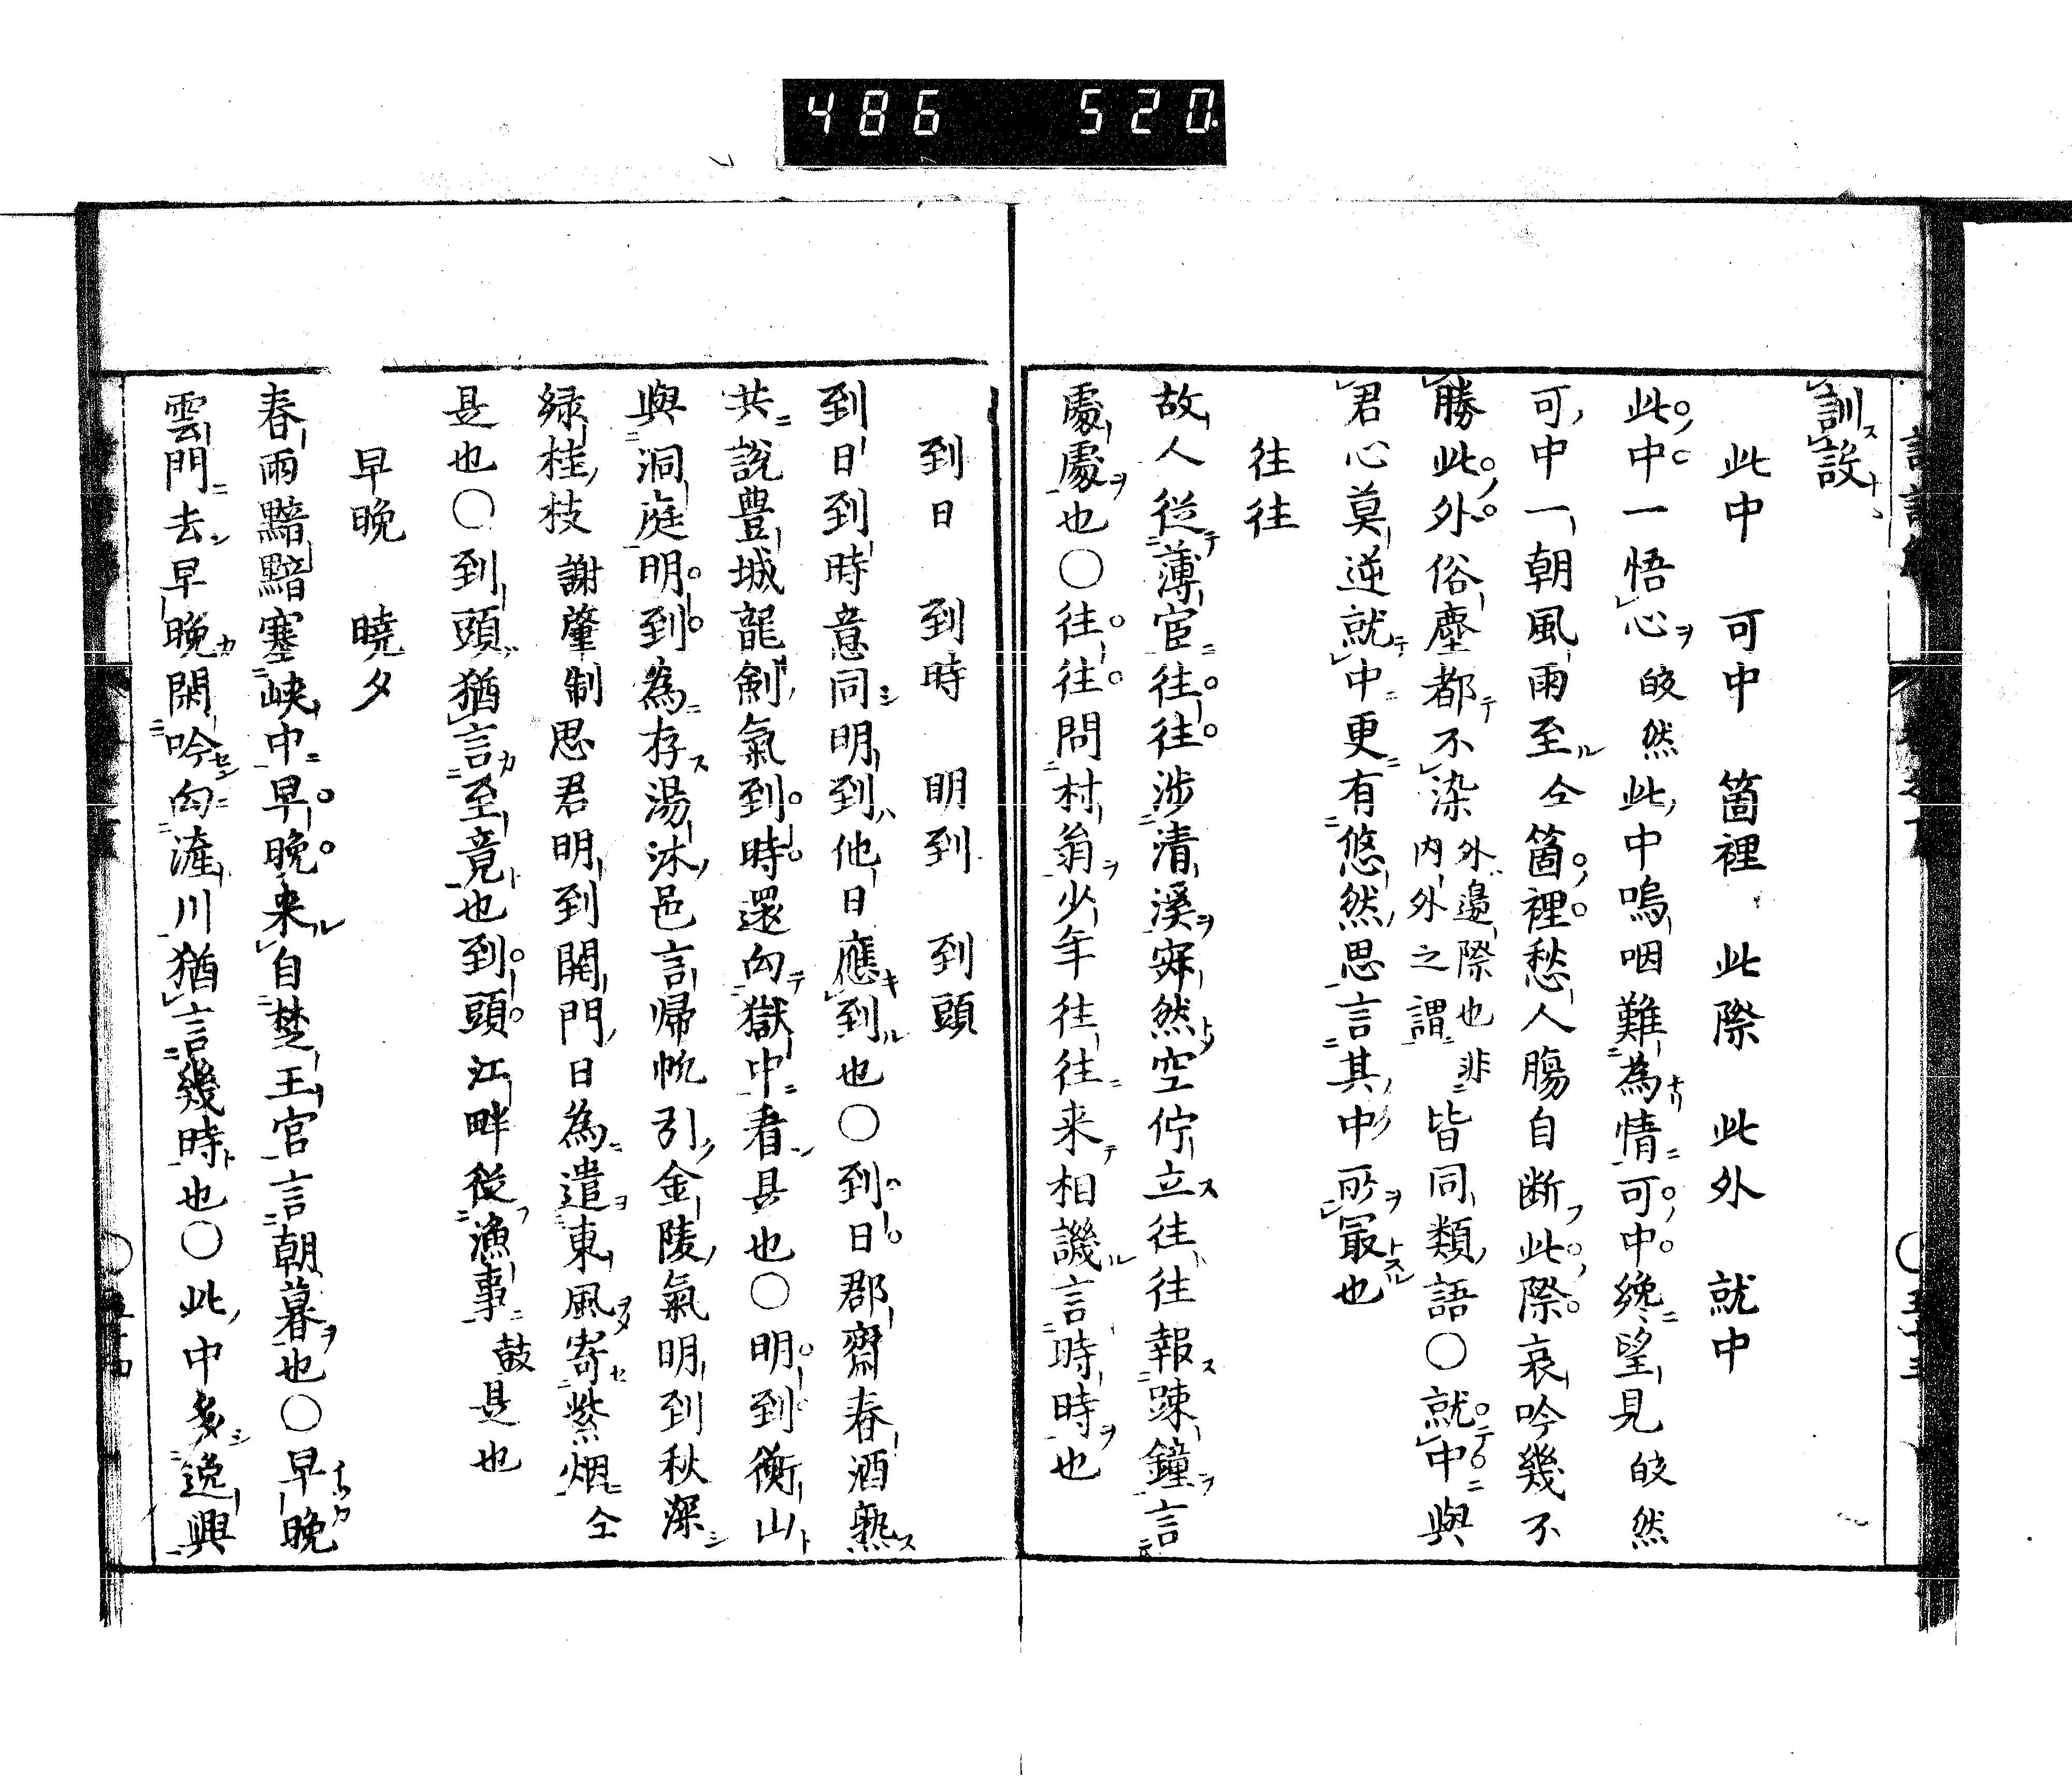 486 520.
訓設
此中 可中 箇裡 此際 此外 就中
此中一悟心皎然此中嗚咽難為情可中纔望見皎然
可中一朝風雨至仝箇裡愁人膓自断此際哀吟幾不
勝此外俗塵都不染外邊際也非内外之謂皆同類語〇就中與
君心莫逆就中更有悠然思言其中所最也
往往
故人従薄宦往往渉清溪寂然空佇立往往報踈鐘言
處處也〇往往問村翁少年往往来相譏言時時也
到日 到時 明到 到頭
到日到時意同明到他日應到也〇到日郡齋春酒熟
共説豊城龍劍氣到時還向獄中看是也〇明到衡山
與洞庭明到為存湯沐邑言帰帆引金陵氣明到秋深
緑桂枝謝肇制思君明到開門日為遣東風寄紫烟仝
是也〇到頭猶言至竟也到頭江畔従漁事鼓是也
早晩 暁夕
春雨黯黯塞峡中早晩来自楚王宮言朝暮也〇早晩
雲門去早晩閑吟向滻川猶言幾時也〇此中多逸興